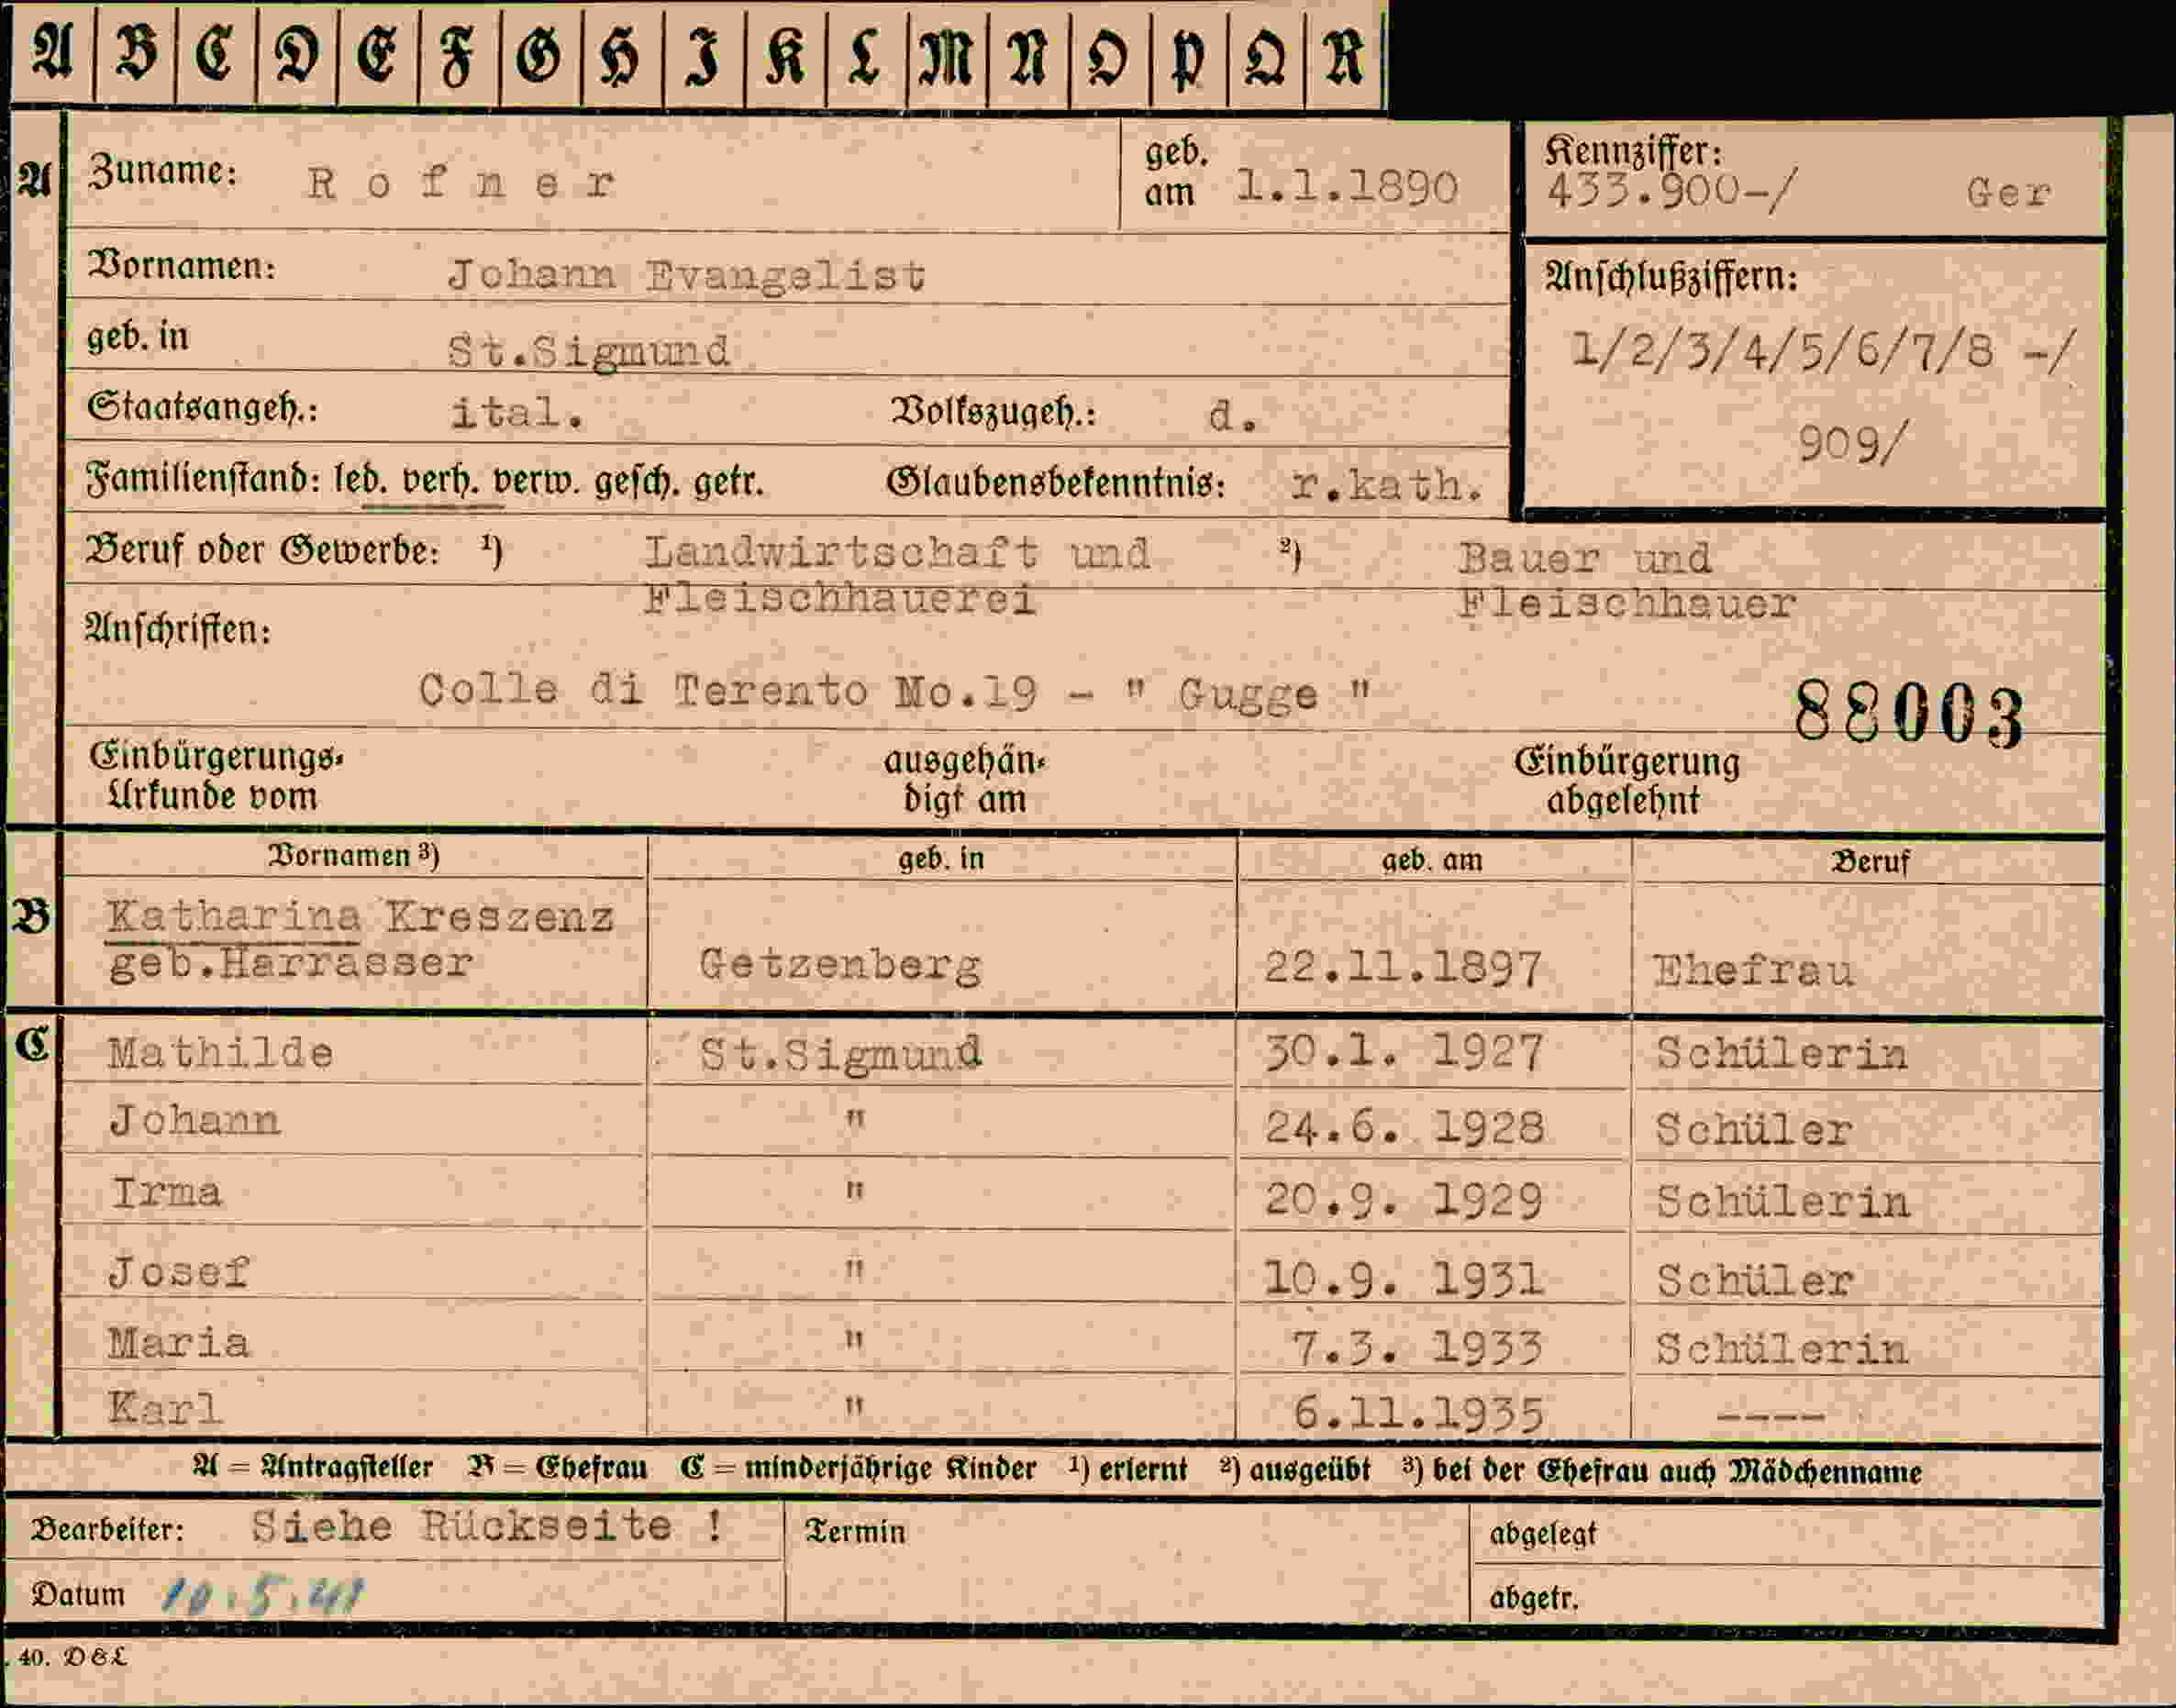 A B C D E F G H I K L M N O P Q R
A Zuname: Rofner geb. am 1.1.1890
Kennziffer:
433.900-/ Ger
Vornamen: Johann Evangelist
Anschlußziffern:
geb. in St.Sigmund
1/2/3/4/5/6/7/8 -/
Staatsangeh.: ital. Volkszugeh.: d.
909/
Familienstand: led. verh. verw. gesch. getr. Glaubensbekenntnis: r.kath.
Beruf oder Gewerbe: ¹) Landwirtschaft und ²) Bauer und
Fleischhauerei Fleischhauer
Anschriften:
Colle di Terento No.19 - " Gugge "
88003
Einbürgerungs- ausgehän- Einbürgerung
Urkunde vom digt am abgelehnt
Vornamen ³) geb. in geb. am Beruf
B Katharina Kreszenz
geb.Harrasser Getzenberg 22.11.1897 Ehefrau
C Mathilde St.Sigmund 30.1. 1927 Schülerin
Johann " 24.6. 1928 Schüler
Irma " 20.9. 1929 Schülerin
Josef " 10.9. 1931 Schüler
Maria " 7.3. 1933 Schülerin
Karl " 6.11.1935 ----
A = Antragsteller B = Ehefrau C = minderjährige Kinder ¹) erlernt ²) ausgeübt ³) bei der Ehefrau auch Mädchenname
Bearbeiter: Siehe Rückseite ! Termin abgelegt
Datum 10.5.41 abgetr.
. 40. D&L